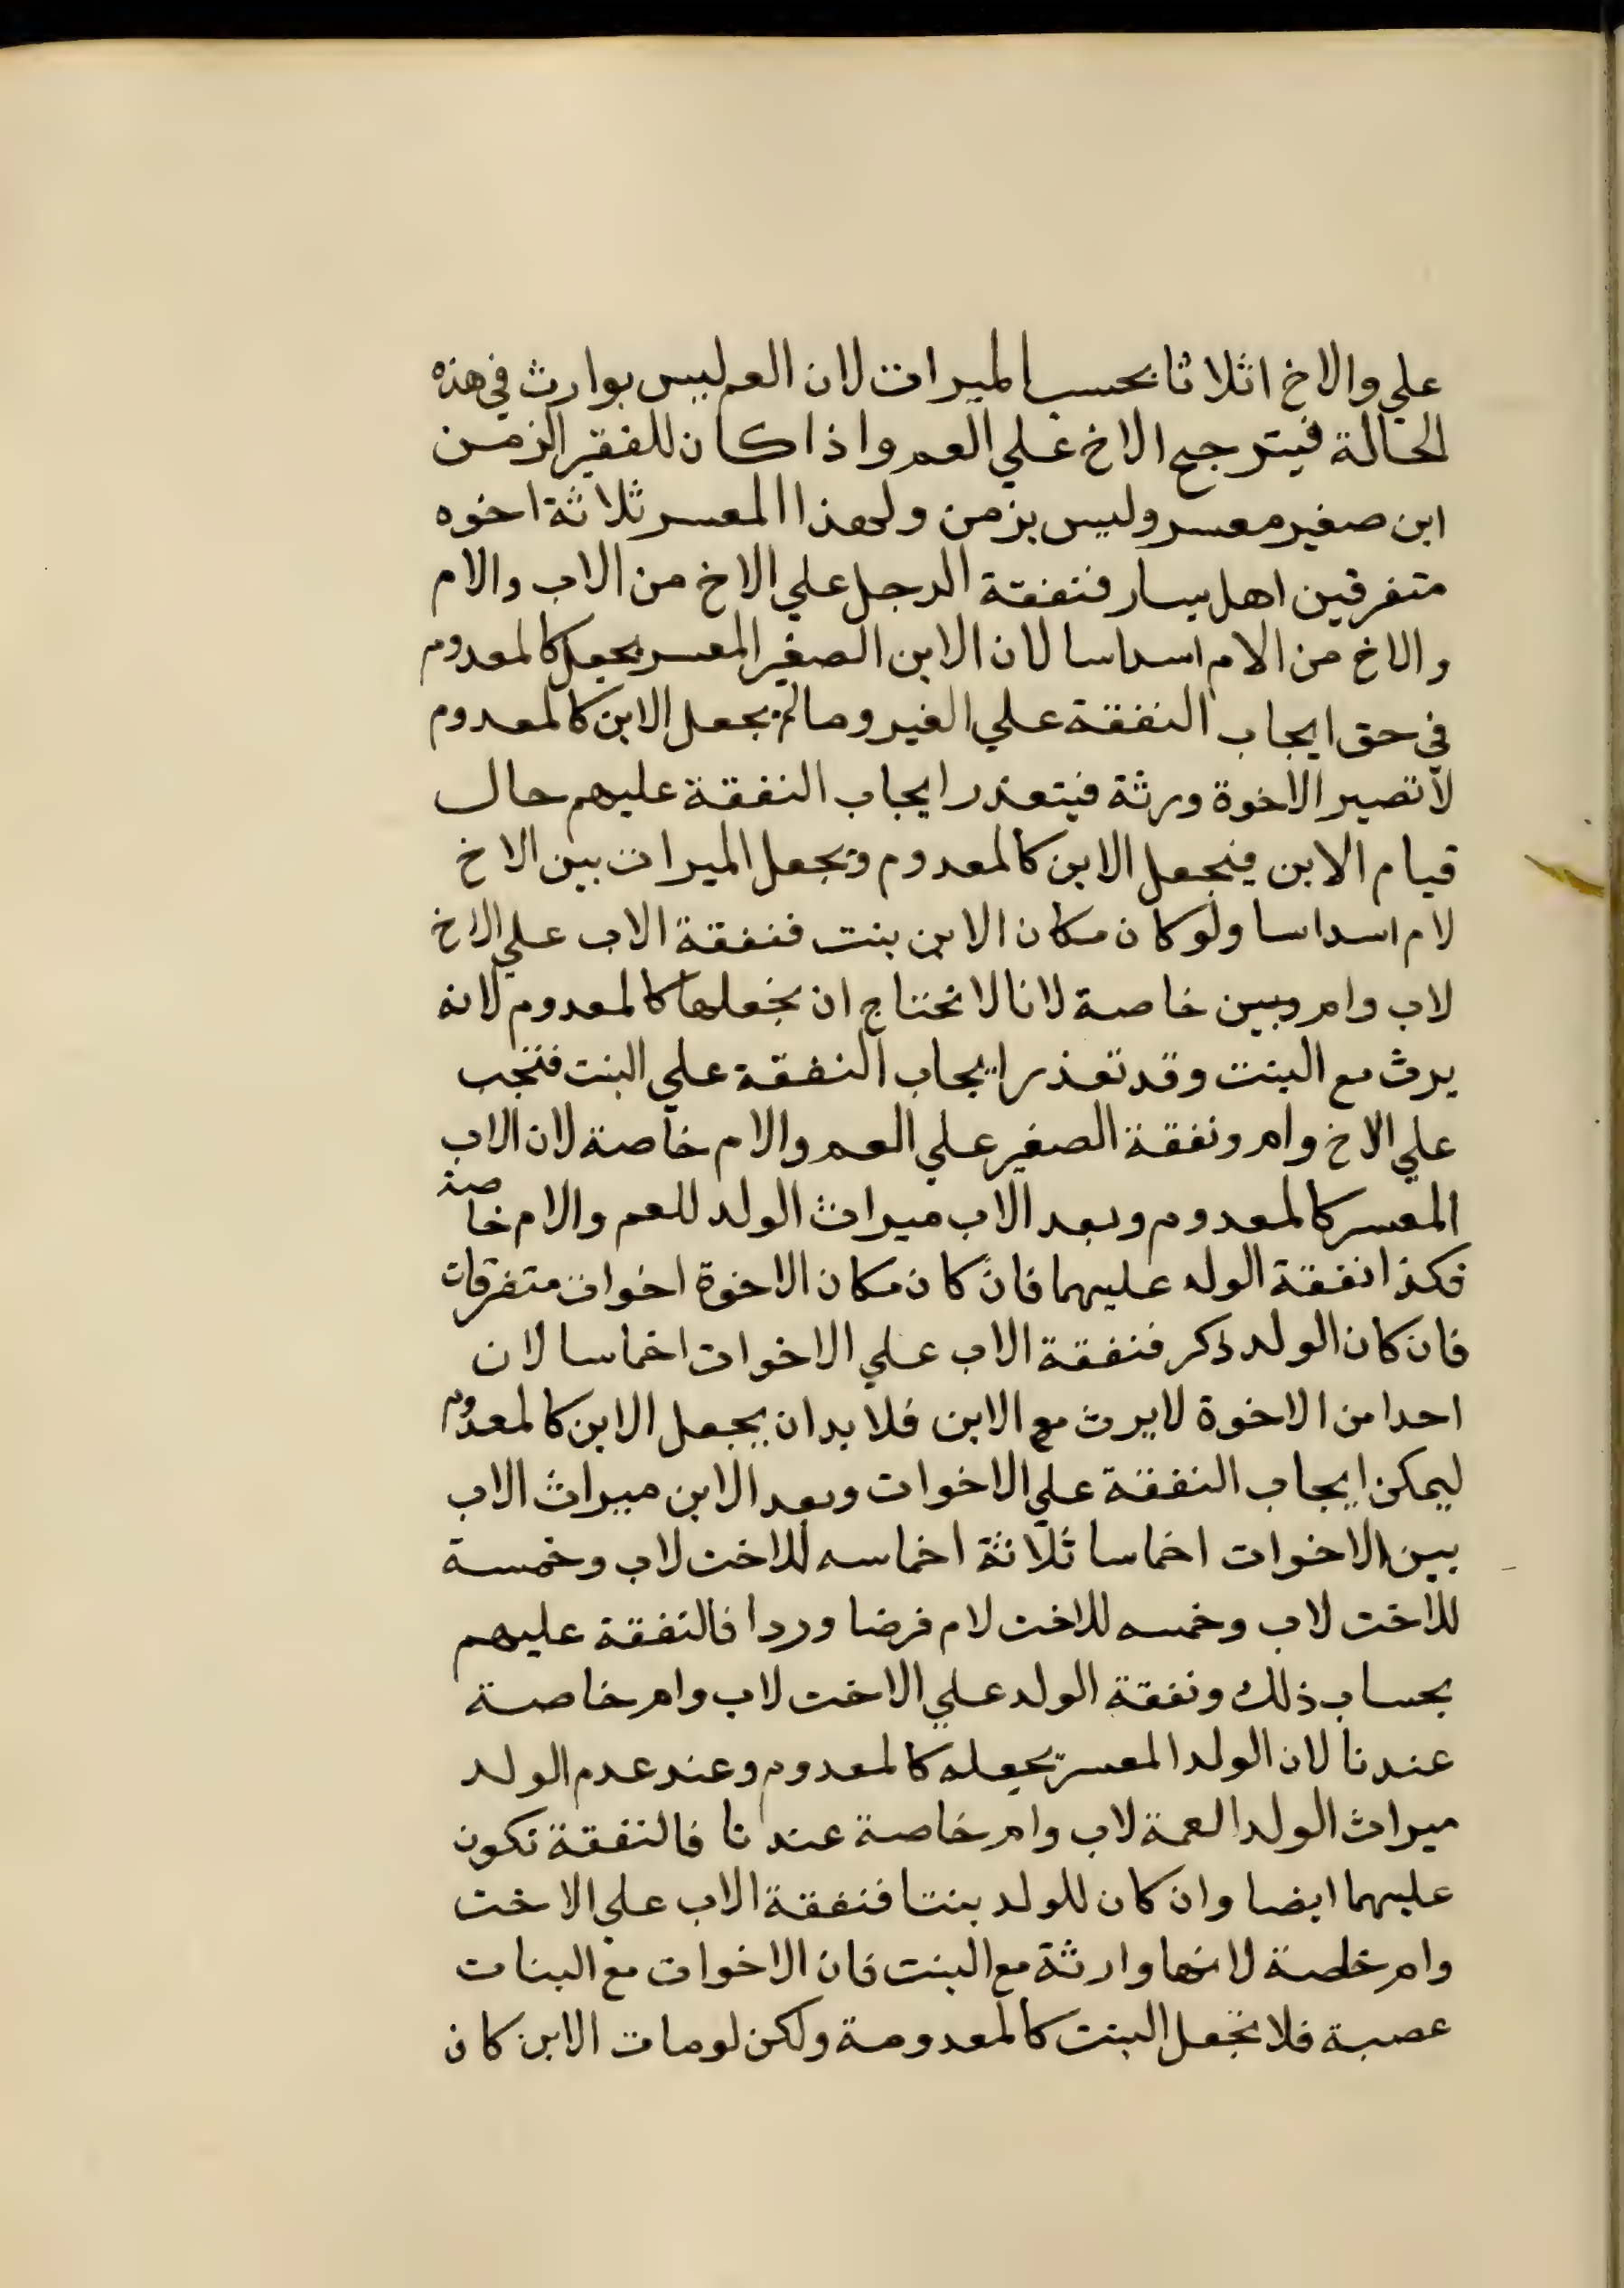 علي والاخ اثلاثا بحسب الميراث لان العم ليس بوارث في هذه
الحالة فيترجح الاخ علي العم واذا كان للفقير الزمن
ابن صغير معسر وليس بزمن ولهذا المعسر ثلاثة اخوه
متفرقين اهل يسار فنفقة الرجل علي الاخ من الاب والام
والاخ من الام اسداسا لان الابن الصغير المعسر يجعل كالمعدوم
في حق ايجاب النفقة علي الغير وما لم يجعل الابن كالمعدوم
لا تصير الاخوة ورثة فيتعذر ايجاب النفقة عليهم حال
قيام الابن فنجعل الابن كالمعدوم ونجعل الميراث بين الاخ
لام اسداسا ولو كان مكان الابن بنت فنفقة الاب علي الاخ
لاب وام وبين خاصة لانا لا نحتاج ان نجعلها كالمعدوم لانه
يرث مع البنت وقد تعذر ايجاب النفقة علي البنت فتجب
علي الاخ وام ونفقة الصغير علي العم والام خاصة لان الاب
المعسر كالمعدوم وبعد الاب ميراث الولد للعم والام خاصة
فكذا نفقة الولد عليهما فان كان مكان الاخوة اخوات متفرقات
فان كان الولد ذكر فنفقة الاب علي الاخوات اخماسا لان
احدا من الاخوة لا يرث مع الابن فلا بد ان يجعل الابن كالمعدوم
ليمكن ايجاب النفقة علي الاخوات وبعد الابن ميراث الاب
بين الاخوات اخماسا ثلاثة اخماسه للاخت لاب وخمسة
للاخت لاب وخمسه للاخت لام فرضا وردا فالنفقة عليهم
بحساب ذلك ونفقة الولد علي الاخت لاب وام خاصة
عندنا لان الولد المعسر يجعله كالمعدوم وعند عدم الولد
ميراث الولد العمة لاب وام خاصة عندنا فالنفقة تكون
عليهما ايضا وان كان للولد بنتا فنفقة الاب علي الاخت
وام خاصة لانها وارثة مع البنت فان الاخوات مع البنات
عصبة فلا تجعل البنت كالمعدومة ولكن لو مات الابن كان